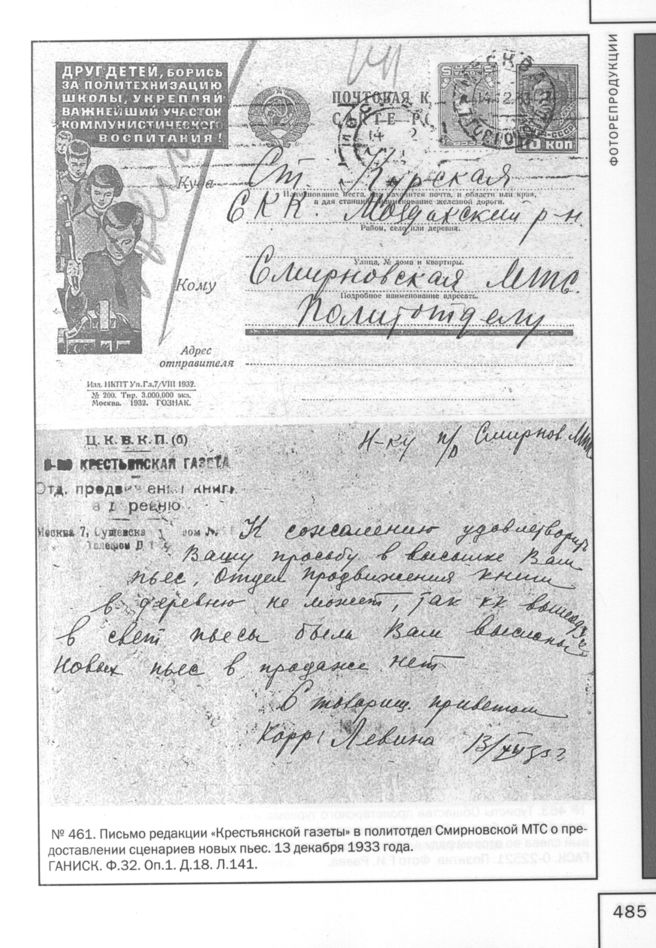 ФОТОРЕПРОДУКЦИИ
ДРУГ ДЕТЕЙ, БОРИСЬ
ЗА ПОЛИТЕХНИЗАЦИЮ
ШКОЛЫ, УКРЕПЛЯЙ
ВАЖНЕЙШИЙ УЧАСТОК
КОММУНИСТИЧЕСКОГО
ВОСПИТАНИЯ!
ПОЧТОВАЯ К
МОСКВА
10 КОП
Куда
Ст. Курская
Наименование места, где находится почта, и области или края,
а для станции наименование железной дороги.
СКК. Молдакский р-н.
Район, село или деревня.
Улица, № дома и квартиры.
Кому
Смирновская МТС.
Подробное наименование адресата.
Политотделу
Адрес
отправителя
Изд. НКПТ Уп. Гл. 7/VIII 1932.
№ 200. Тир. 3.000.000 экз.
Москва. 1932. ГОЗНАК.
Ц. К. В. К. П. (б)
КРЕСТЬЯНСКАЯ ГАЗЕТА
Отд. продвижения книги
в деревню
Москва 7, Сущевска
Телефон Д 1
Н-ку п/о Смирнов. МТС
К сожалению удовлетворить
Вашу просьбу в высылке Вам
пьес, Отдел продвижения книги
в деревню не может, так кк вышедшие
в свет пьесы были Вам высланы
Новых пьес в продаже нет
С товарищ. приветом
Корр. Левина 13/XII 33 г.
№ 461. Письмо редакции «Крестьянской газеты» в политотдел Смирновской МТС о пре-
доставлении сценариев новых пьес. 13 декабря 1933 года.
ГАНИСК. Ф.32. Оп.1. Д.18. Л.141.
485